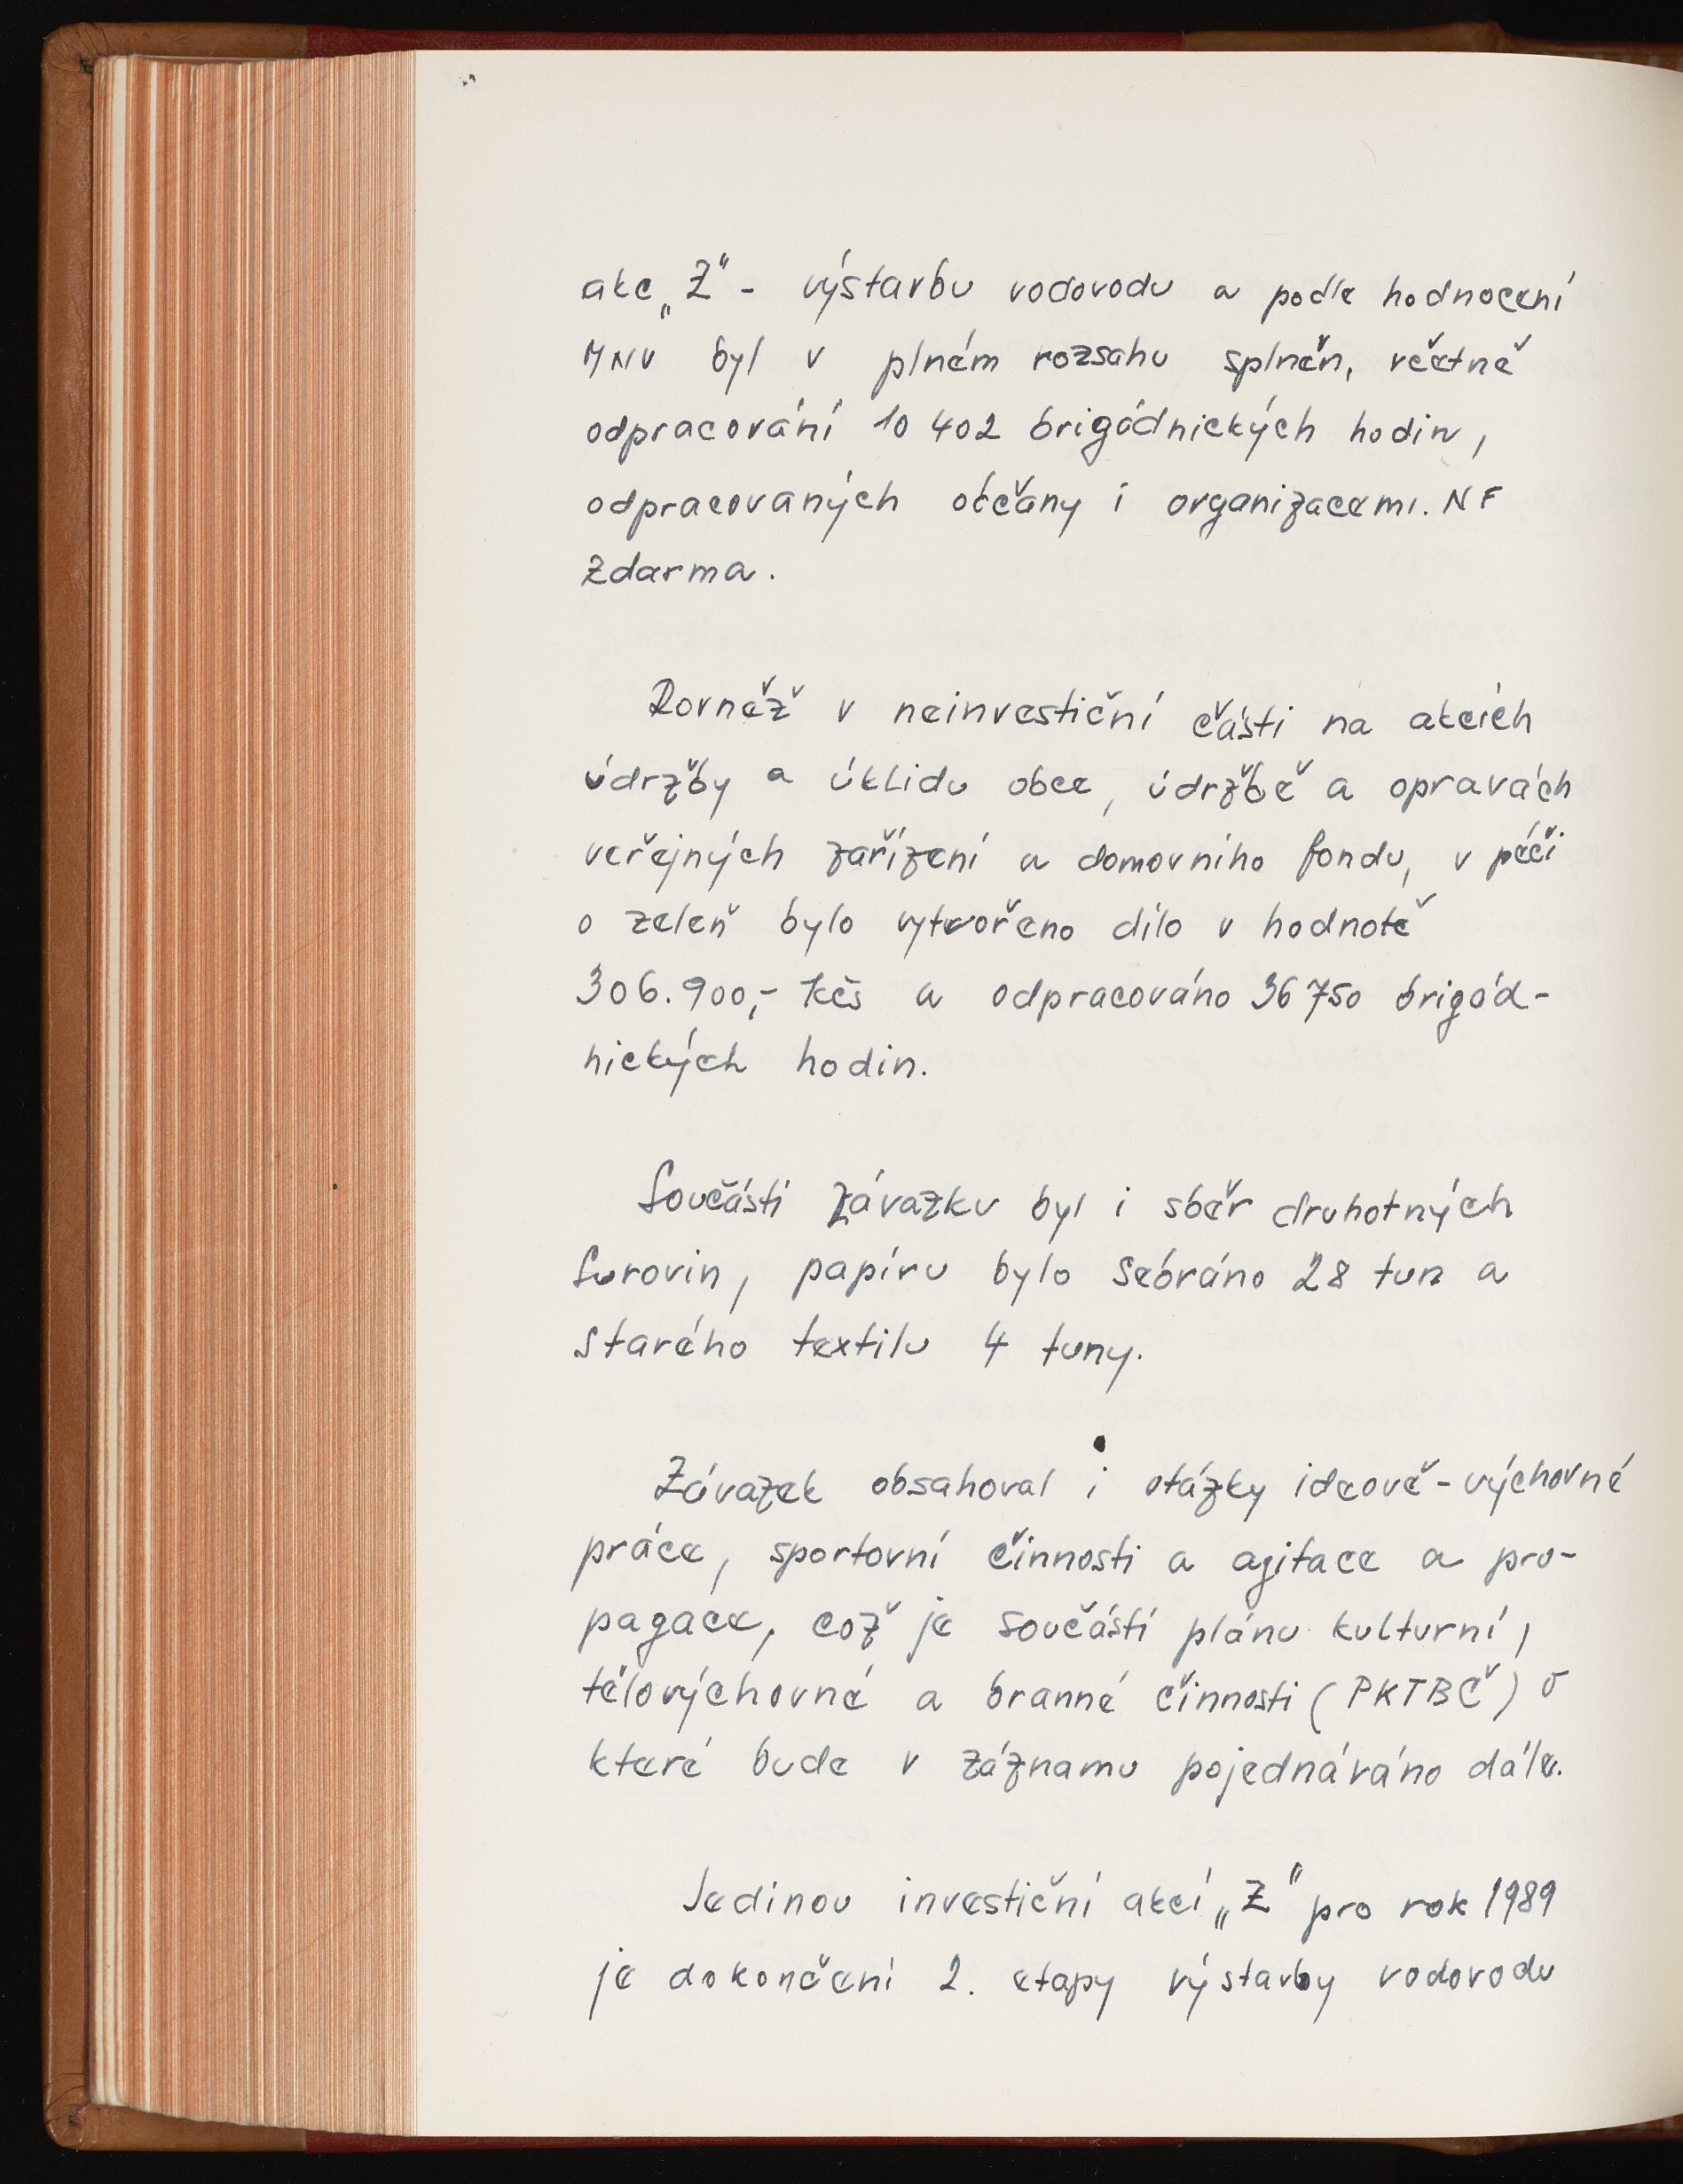 akc „Z" - výstavbu vodovodu a podle hodnocení
MNV byl v plném rozsahu splněn, včetně
odpracování 10 402 brigádnických hodin,
odpracovaných občany i organizacemi. NF
zdarma.
Rovněž v neinvestiční části na akcích
údržby a úklidu obce, údržbě a opravách
veřejných zařízení a domovního fondu, v péči
o zeleň bylo vytvořeno dílo v hodnotě
306.900,- Kčs a odpracováno 36 750 brigád-
nických hodin.
Součástí závazku byl i sběr druhotných
surovin, papíru bylo sebráno 28 tun a
starého textilu 4 tuny.
Závazek obsahoval i otázky ideově-výchovné
práce, sportovní činnosti a agitace a pro-
pagace, což je součástí plánu kulturní,
tělovýchovné a branné činnosti (PKTBČ) o
které bude v záznamu pojednáváno dále.
Jedinou investiční akcí „Z" pro rok 1989
je dokončení 2. etapy výstavby vodovodu